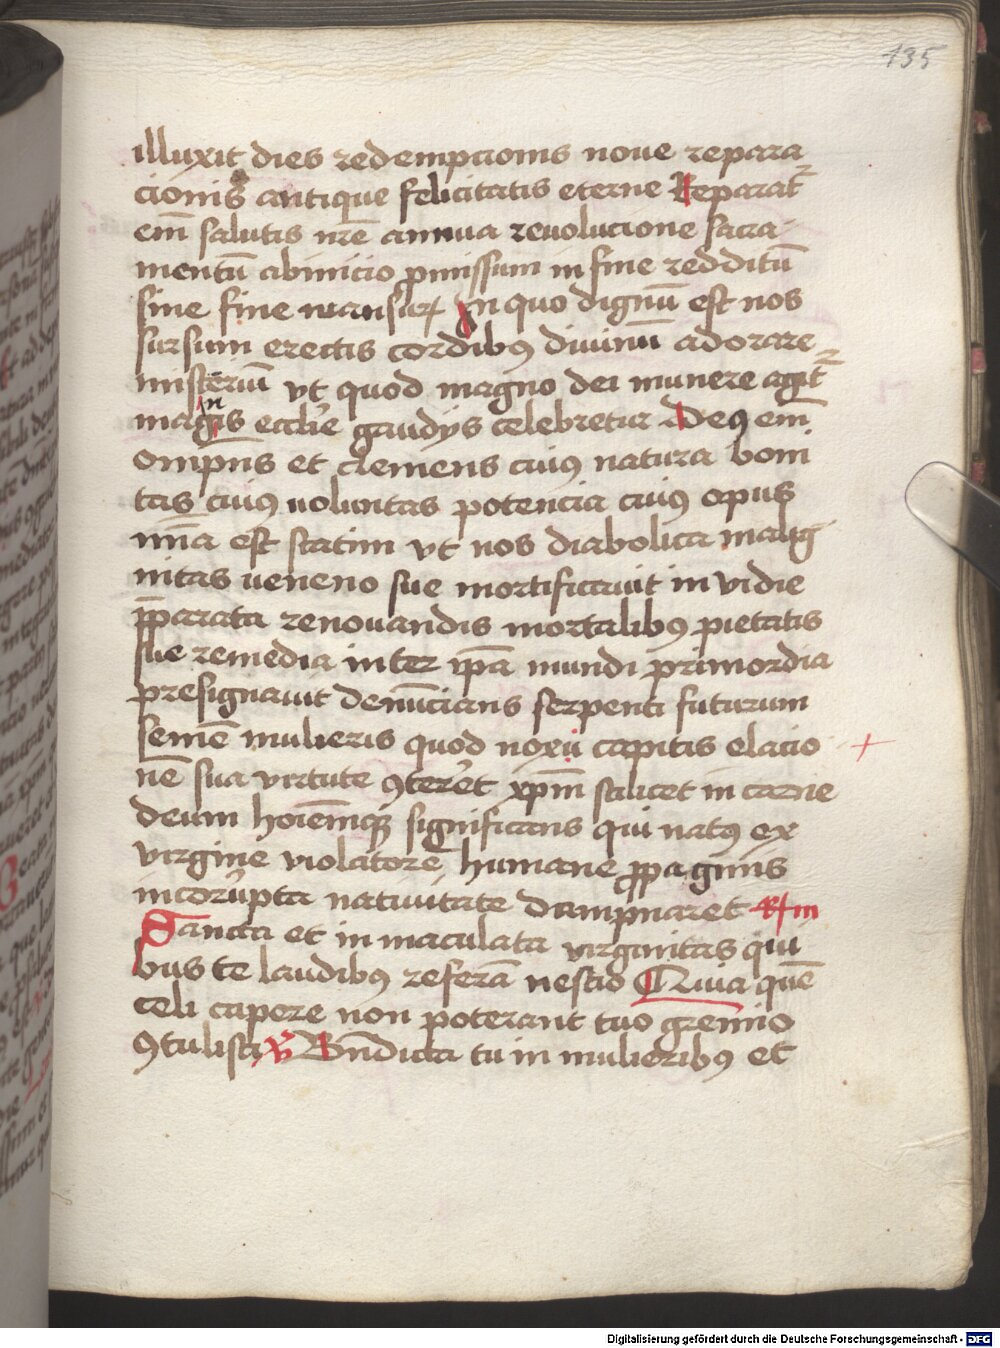 135
illuxit dies redempcionis noue repara
cionis antique felicitatis eterne Reparat᷑
em̄ salutis nr̄e annua reuolucione sacra-
mentū abinicio ꝓmissum in fine redditū
sine fine mansuꝝ In quo dignū est nos
sursum erectis cordibꝰ diuinū adorare
misteriū vt quod magno dei munere agit᷑
magnis eccl̄ie gaudijs celebretur Deꝰ em̄
omp̄ns et clemens cuiꝰ natura boni
tas cuiꝰ uoluntas potencia cuiꝰ opus
mīa est statim vt nos diabolica malig
nitas ueneno sue mortificauit in vidie
p̄parata renouandis mortalibꝰ pietatis
sue remedia inter ip̄a mundi primordia
presignauit denūcians serpenti futurum
semē mulieris quod noxii capitis elacio
nē sua virtute ꝯtereret xp̄m scilicet in carne
deum hoīemqꝫ significans qui natꝰ ex
virgine violatorē humane ꝓpaginis
incorrupta natiuitate dampnaret
Sancta et in maculata virginitas qui
bus te laudibꝰ referā nescio Quia quē
celi capere non poterant tuo gremio
ꝯtulisti ℣ Bn̄dicta tu in mulieribꝰ et
Digitalisierung gefördert durch die Deutsche Forschungsgemeinschaft - DFG